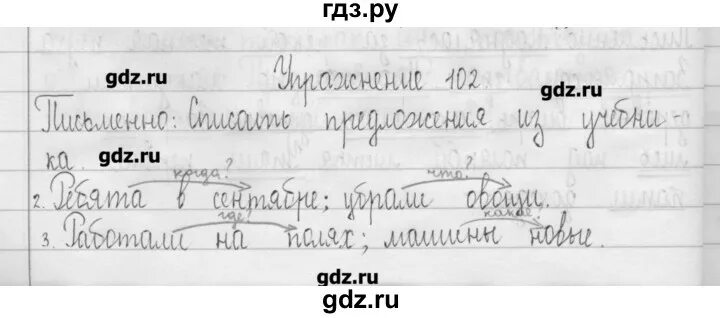 гдз.ру
gdz.ru
Упражнение 102.
gdz.ru
Письменно: Списать предложения из учебни
ка
gdz.ru
когда? что?
2. Ребята в сентябре; убрали овощи.
где? какие?
3. Работали на полях; машины новые.
gdz.ru
gdz.ru